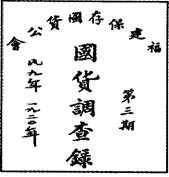 福建保存國貨公會
國貨調查錄
第三期
民九年 一九二〇年